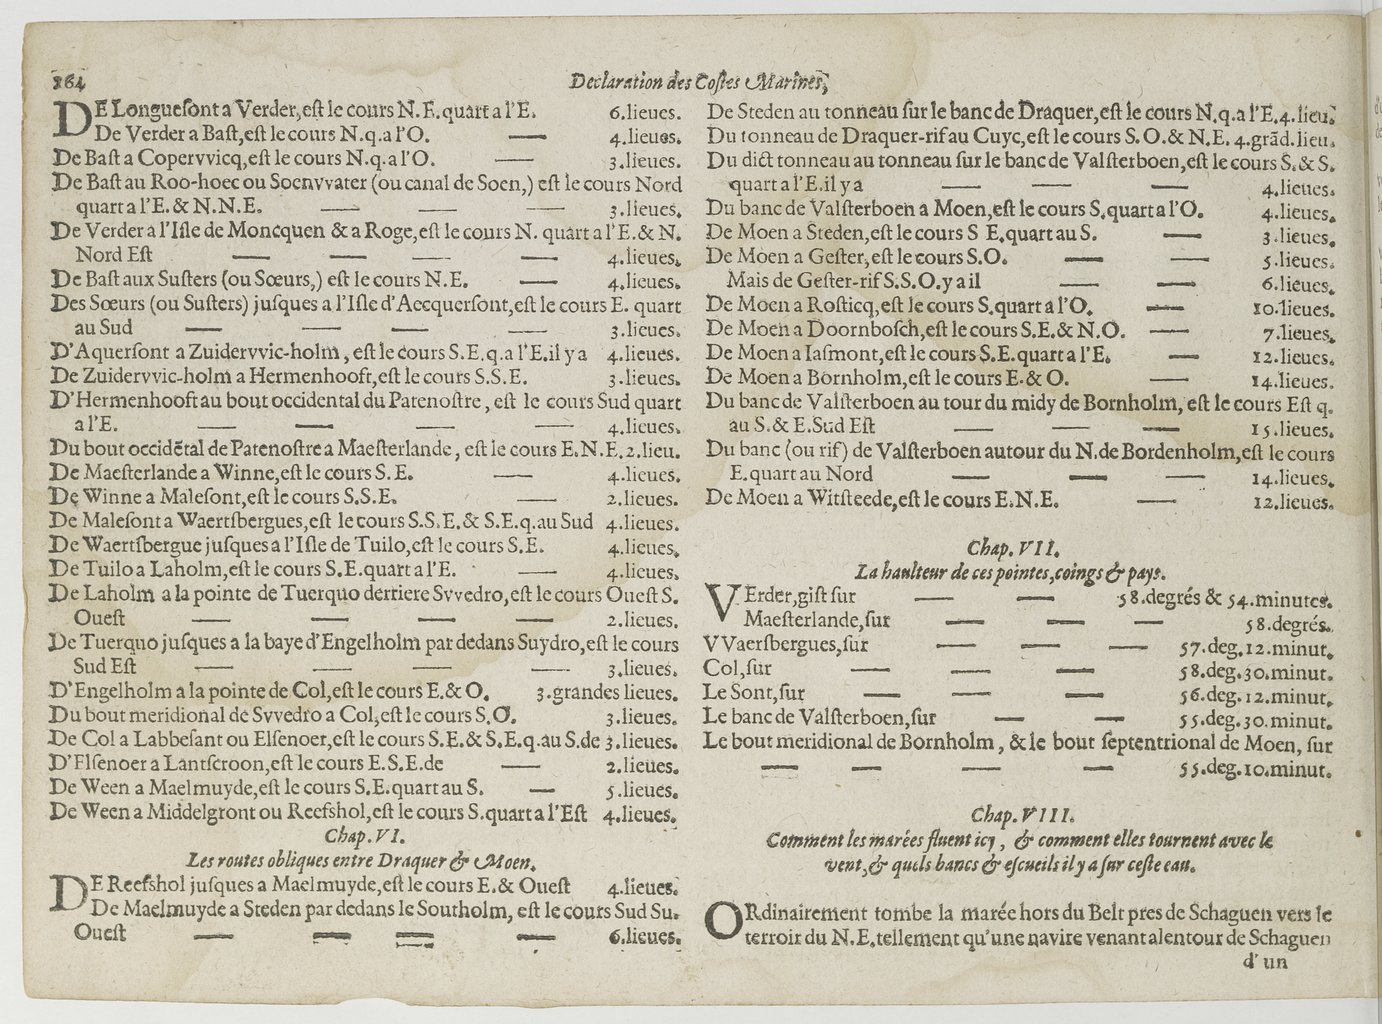 164
Declaration des Costes Marines,
DE Longuesont a Verder, est le cours N.E. quart a l'E. 6. lieues.
De Verder a Bast, est le cours N. q. a l'O. — 4. lieues.
De Bast a Copervvicq, est le cours N. q. a l'O. — 3. lieues.
De Bast au Roo-hoec ou Soenvvater (ou canal de Soen,) est le cours Nord
quart a l'E. & N.N.E. — — — 3. lieues.
De Verder a l'Isle de Moncquen & a Roge, est le cours N. quart a l'E. & N.
Nord Est — — — — 4. lieues.
De Bast aux Susters (ou Sœurs,) est le cours N.E. — 4. lieues.
Des Sœurs (ou Susters) jusques a l'Isle d'Aecquersont, est le cours E. quart
au Sud — — — — 3. lieues.
D'Aquersont a Zuidervvic-holm, est le cours S.E. q. a l'E. il y a 4. lieues.
De Zuidervvic-holm a Hermenhooft, est le cours S.S.E. 3. lieues.
D'Hermenhooft au bout occidental du Patenostre, est le cours Sud quart
a l'E. — — — — 4. lieues.
Du bout occidẽtal de Patenostre a Maesterlande, est le cours E.N.E. 2. lieu.
De Maesterlande a Winne, est le cours S.E. — 4. lieues.
De Winne a Malesont, est le cours S.S.E. — 2. lieues.
De Malesont a Waertsbergues, est le cours S.S.E. & S.E. q. au Sud 4. lieues.
De Waertsbergue jusques a l'Isle de Tuilo, est le cours S.E. 4. lieues.
De Tuilo a Laholm, est le cours S.E. quart a l'E. — 4. lieues.
De Laholm a la pointe de Tuerquo derriere Svvedro, est le cours Ouest S.
Ouest — — — — 2. lieues.
De Tuerquo jusques a la baye d'Engelholm par dedans Suydro, est le cours
Sud Est — — — — 3. lieues.
D'Engelholm a la pointe de Col, est le cours E. & O. 3. grandes lieues.
Du bout meridional de Svvedro a Col, est le cours S.O. 3. lieues.
De Col a Labbesant ou Elsenoer, est le cours S.E. & S.E. q. au S. de 3. lieues.
D'Elsenoer a Lantscroon, est le cours E.S.E. de — 2. lieues.
De Ween a Maelmuyde, est le cours S.E. quart au S. — 5. lieues.
De Ween a Middelgront ou Reefshol, est le cours S. quart a l'Est 4. lieues.
Chap. VI.
Les routes obliques entre Draquer & Moen.
DE Reefshol jusques a Maelmuyde, est le cours E. & Ouest 4. lieues.
De Maelmuyde a Steden par dedans le Southolm, est le cours Sud Su.
Ouest — — — — 6. lieues.
De Steden au tonneau sur le banc de Draquer, est le cours N. q. a l'E. 4. lieu.
Du tonneau de Draquer-rif au Cuyc, est le cours S.O. & N.E. 4. grãd. lieu.
Du dict tonneau au tonneau sur le banc de Valsterboen, est le cours S. & S.
quart a l'E. il y a — — — 4. lieues.
Du banc de Valsterboen a Moen, est le cours S. quart a l'O. 4. lieues.
De Moen a Steden, est le cours S E. quart au S. — 3. lieues.
De Moen a Gester, est le cours S.O. — — 5. lieues.
Mais de Gester-rif S.S.O. y a il — — 6. lieues.
De Moen a Rosticq, est le cours S. quart a l'O. — 10. lieues.
De Moen a Doornbosch, est le cours S.E. & N.O. — 7. lieues.
De Moen a Iasmont, est le cours S.E. quart a l'E. — 12. lieues.
De Moen a Bornholm, est le cours E. & O. — 14. lieues.
Du banc de Valsterboen au tour du midy de Bornholm, est le cours Est q.
au S. & E. Sud Est — — — 15. lieues.
Du banc (ou rif) de Valsterboen autour du N. de Bordenholm, est le cours
E. quart au Nord — — — 14. lieues.
De Moen a Witsteede, est le cours E.N.E. — 12. lieues.
Chap. VII.
La haulteur de ces pointes, coings & pays.
VErder, gist sur — — 58. degrés & 54. minutes.
Maesterlande, sur — — — 58. degrés.
VVaersbergues, sur — — — 57. deg. 12. minut.
Col, sur — — — 58. deg. 30. minut.
Le Sont, sur — — — 56. deg. 12. minut.
Le banc de Valsterboen, sur — — 55. deg. 30. minut.
Le bout meridional de Bornholm, & le bout septentrional de Moen, sur
— — — — 55. deg. 10. minut.
Chap. VIII.
Comment les marées fluent icy, & comment elles tournent avec le
vent, & quels bancs & escueils il y a sur ceste eau.
ORdinairement tombe la marée hors du Belt pres de Schaguen vers le
terroir du N.E. tellement qu'une navire venant alentour de Schaguen
d'un